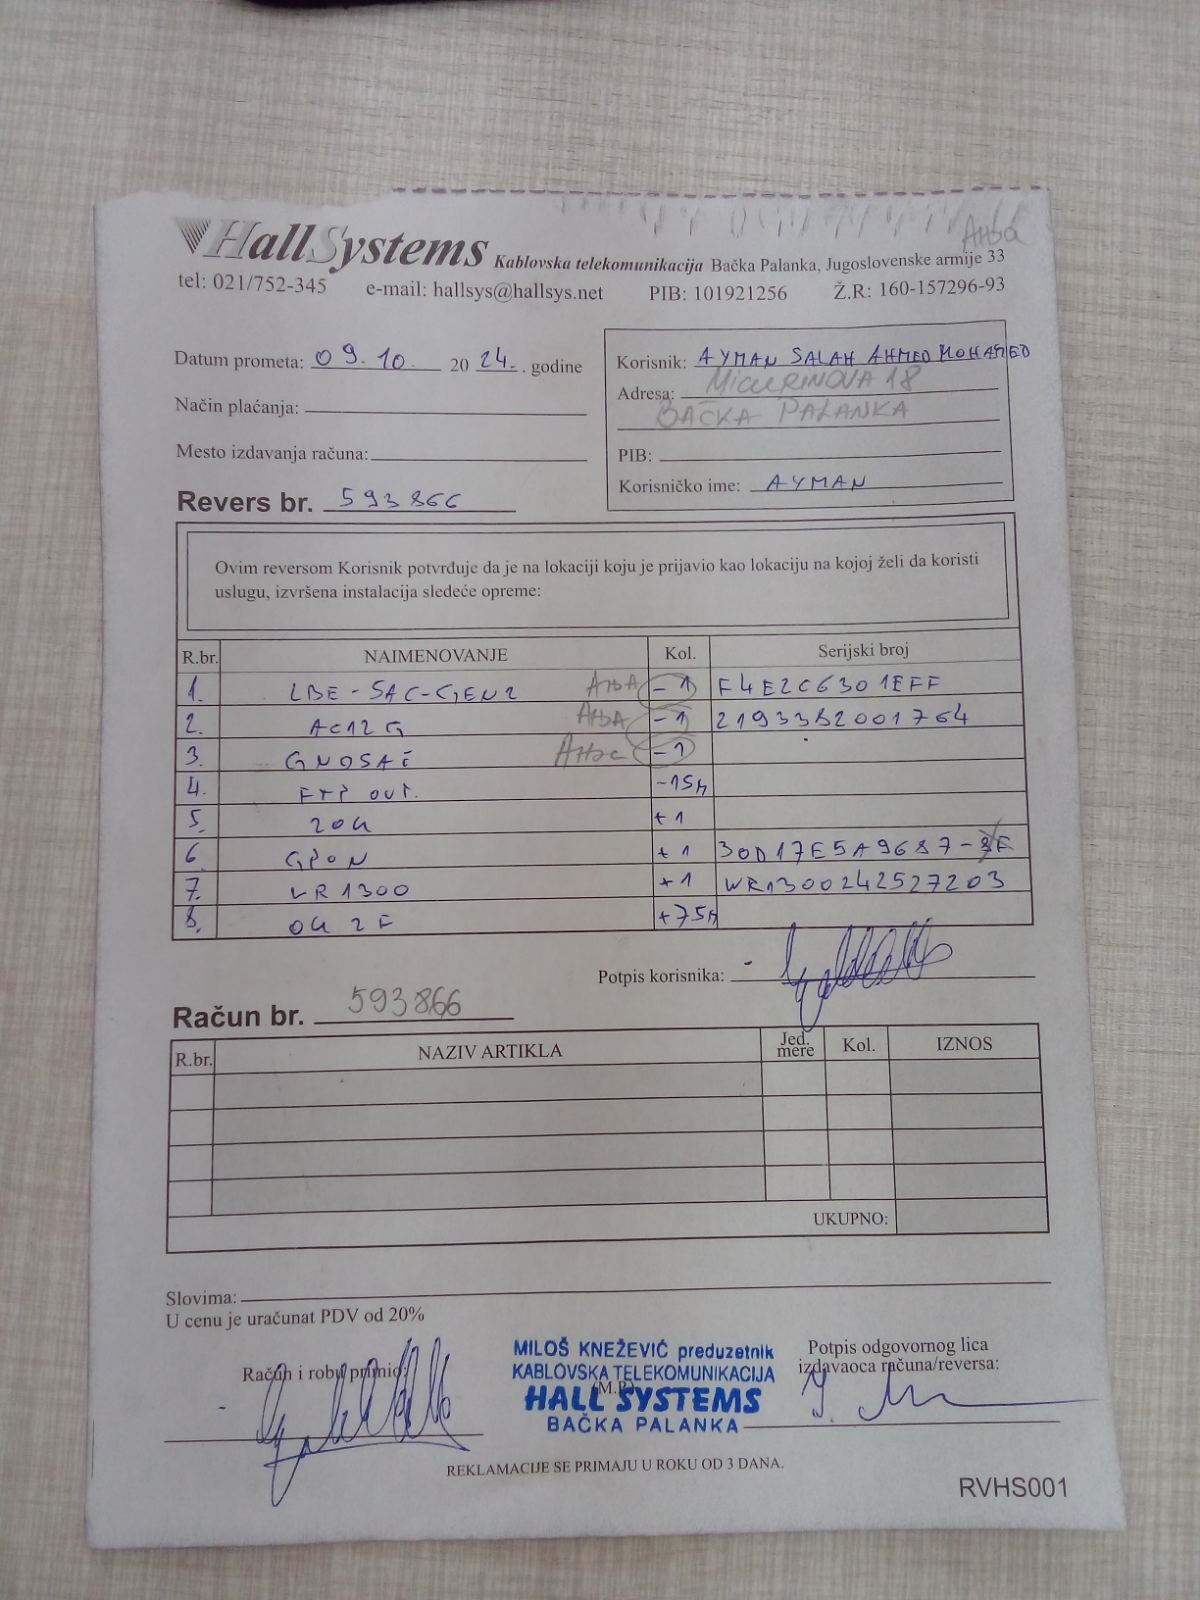 Hall Systems Kablovska telekomunikacija Bačka Palanka, Jugoslovenske armije 33
tel: 021/752-345 e-mail: hallsys@hallsys.net PIB: 101921256 Ž.R: 160-157296-93
Datum prometa: 09. 10. 2024. godine
Način plaćanja:
Mesto izdavanja računa:
Korisnik: AYMAN SALAH AHMED MOHAMED
Adresa: MIČURINOVA 18
BAČKA PALANKA
PIB:
Korisničko ime: AYMAN
Revers br. 593866
Ovim reversom Korisnik potvrđuje da je na lokaciji koju je prijavio kao lokaciju na kojoj želi da koristi
uslugu, izvršena instalacija sledeće opreme:
R.br. NAIMENOVANJE Kol. Serijski broj
1. LBE-5AC-GEN2 -1 F4E2C6301EFF
2. AC12G -1 2193382001764
3. -1
4. FTP OUT. -15m
5. +1
6 GPON +1 30D17E5A9687
7. VR1300 +1 WR1300242527203
8. OK 2F +75m
Potpis korisnika:
Račun br. 593866
R.br. NAZIV ARTIKLA Jed. mere Kol. IZNOS
UKUPNO:
Slovima:
U cenu je uračunat PDV od 20%
Račun i robu primio:
MILOŠ KNEŽEVIĆ preduzetnik
KABLOVSKA TELEKOMUNIKACIJA
(M.P.)
HALL SYSTEMS
BAČKA PALANKA
Potpis odgovornog lica
izdavaoca računa/reversa:
REKLAMACIJE SE PRIMAJU U ROKU OD 3 DANA.
RVHS001